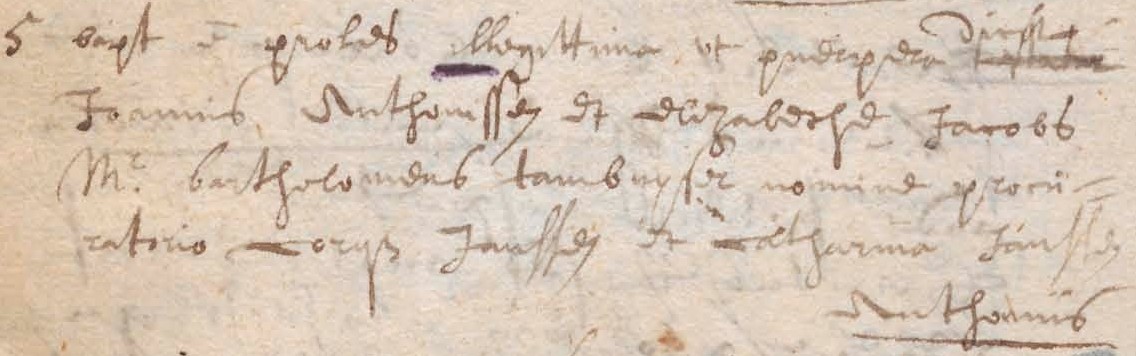 5 bapt ē proles illegittima ut puerpera dixit
Joannis Anthonissen et Elizabethe Jacobs
Mr. bartholomeus tambuyser nomine procu=
ratorio Joris Janssen et Catharina Janssen
Anthonius